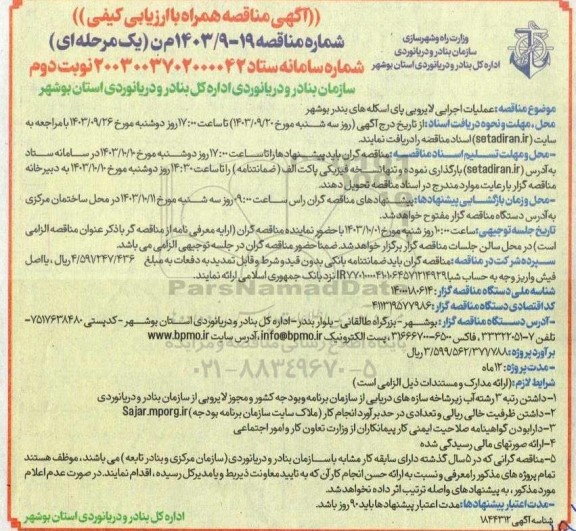 ((آگهی مناقصه همراه با ارزیابی کیفی))
شماره مناقصه ۱۹-۱۴۰۳/۹م ن (یک مرحله ای)
شماره سامانه ستاد ۲۰۰۳۰۰۳۷۰۲۰۰۰۰۴۲ نوبت دوم
سازمان بنادر و دریانوردی اداره کل بنادر و دریانوردی استان بوشهر
وزارت راه و شهرسازی
سازمان بنادر و دریانوردی
اداره کل بنادر و دریانوردی استان بوشهر
موضوع مناقصه: عملیات اجرایی لایروبی پای اسکله های بندر بوشهر
محل، مهلت و نحوه دریافت اسناد: از تاریخ درج آگهی (روز سه شنبه مورخ ۱۴۰۳/۰۹/۲۰) تا ساعت ۱۷:۰۰ روز دوشنبه مورخ ۱۴۰۳/۰۹/۲۶ با مراجعه به
سایت (setadiran.ir) اسناد مناقصه را دریافت نمایند.
-محل و مهلت تسلیم اسناد مناقصه: مناقصه گران باید پیشنهادها را تا ساعت ۱۷:۰۰ روز دوشنبه مورخ ۱۴۰۳/۱۰/۱۰ در سامانه ستاد
به آدرس (setadiran.ir) بارگذاری نموده و تنها نسخه فیزیکی پاکت الف (ضمانتنامه) را تا ساعت ۱۴:۳۰ روز دوشنبه مورخ ۱۴۰۳/۱۰/۱۰ به دبیرخانه
مناقصه گزار با رعایت موارد مندرج در اسناد مناقصه تحویل دهند.
-محل و زمان بازگشایی پیشنهادها: پیشنهادهای مناقصه گران راس ساعت ۰۹:۰۰ روز سه شنبه مورخ ۱۴۰۳/۱۰/۱۱ در محل ساختمان مرکزی
به آدرس دستگاه مناقصه گزار مفتوح خواهد شد.
تاریخ جلسه توجیهی: ساعت ۱۰:۰۰ روز شنبه مورخ ۱۴۰۳/۱۰/۰۱ با حضور نماینده مناقصه گران (ارایه معرفی نامه از مناقصه گر با ذکر عنوان مناقصه الزامی
است) در محل سالن جلسات مناقصه گزار برگزار خواهد شد. ضمنا حضور مناقصه گران در جلسه توجیهی الزامی می باشد.
سپرده شرکت در مناقصه: مناقصه گران باید ضمانتنامه بانکی بدون قید و شرط و قابل تمدید به دفعات به مبلغ ۴/۵۹۷/۲۴۷/۴۳۶ ریال، یا اصل
فیش واریز وجه به حساب شبا نزد بانک جمهوری اسلامی ارائه نمایند.
شناسه ملی دستگاه مناقصه گزار: ۱۴۰۰۰۱۸۰۶۱۴
کد اقتصادی دستگاه مناقصه گزار: ۴۱۱۳۹۵۷۷۹۸۶
-آدرس دستگاه مناقصه گزار: بوشهر - بزرگراه طالقانی - بلوار بندر - اداره کل بنادر و دریانوردی استان بوشهر - کدپستی ۷۵۱۷۶۳۸۴۸۰-
تلفن ۷-۳۳۳۲۲۰۵۱، فاکس ۶۵۰-۳۱۶۶۶۷۰۰، پست الکترونیک info@bpmo.ir، آدرس سایت www.bpmo.ir
برآورد پروژه: ۳/۵۹۹/۵۶۲/۳۷۷/۷۸۸ ریال
-مدت پروژه: ۱۲ ماه
شرایط لازم: (ارائه مدارک و مستندات ذیل الزامی است)
۱-داشتن رتبه ۳ رشته آب زیرشاخه سازه های دریایی از سازمان برنامه و بودجه کشور و مجوز لایروبی از سازمان بنادر و دریانوردی
۲-داشتن ظرفیت خالی ریالی و تعدادی در حد برآورد انجام کار (ملاک سایت سازمان برنامه بودجه) Sajar.mporg.ir
۳-دارا بودن گواهینامه صلاحیت ایمنی کار پیمانکاران از وزارت تعاون کار و امور اجتماعی
۴-ارائه صورتهای مالی رسیدگی شده
۵-مناقصه گرانی که در ۵ سال گذشته دارای سابقه کار مشابه با سازمان بنادر و دریانوردی (سازمان مرکزی و بنادر تابعه) می باشند، موظف هستند
تمام پروژه های مذکور را معرفی و نسبت به ارائه حسن انجام کار آن که به تایید معاونت ذیربط و یا مدیرکل رسیده، اقدام نمایند. در صورت عدم اعلام
مورد مذکور، به پیشنهادهای واصله ترتیب اثر داده نخواهد شد.
-مدت اعتبار پیشنهادها: مدت اعتبار پیشنهادها باید ۹۰ روز باشد.
شناسه آگهی ۱۸۴۴۳۱۲
اداره کل بنادر و دریانوردی استان بوشهر
ParsNamadData
پایگاه اطلاع رسانی مناقصه و مزایده
۰۲۱-۸۸۳۴۹۶۷۰-۵